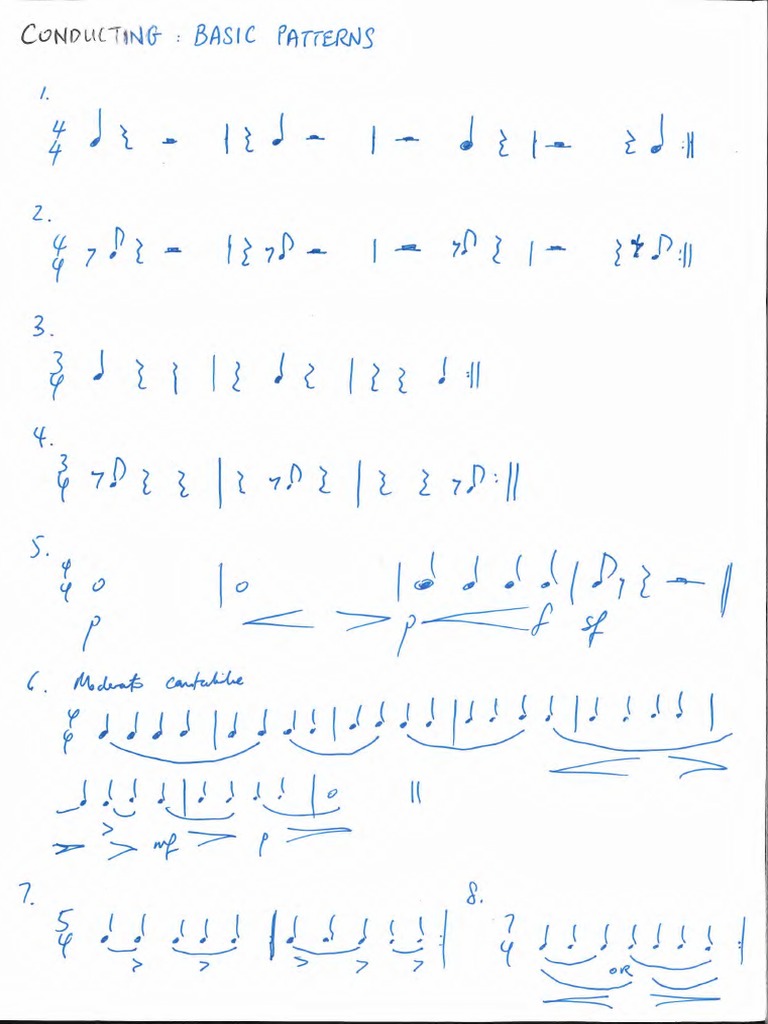 CONDUCTING : BASIC PATTERNS
1.
4
4
2.
4
4
3.
3
4
4.
3
4
5.
4
4
p p f sf
6. Moderato cantabile
4
4
> > mf > p
7. 8.
5 7
4 4
> > > > >
OR